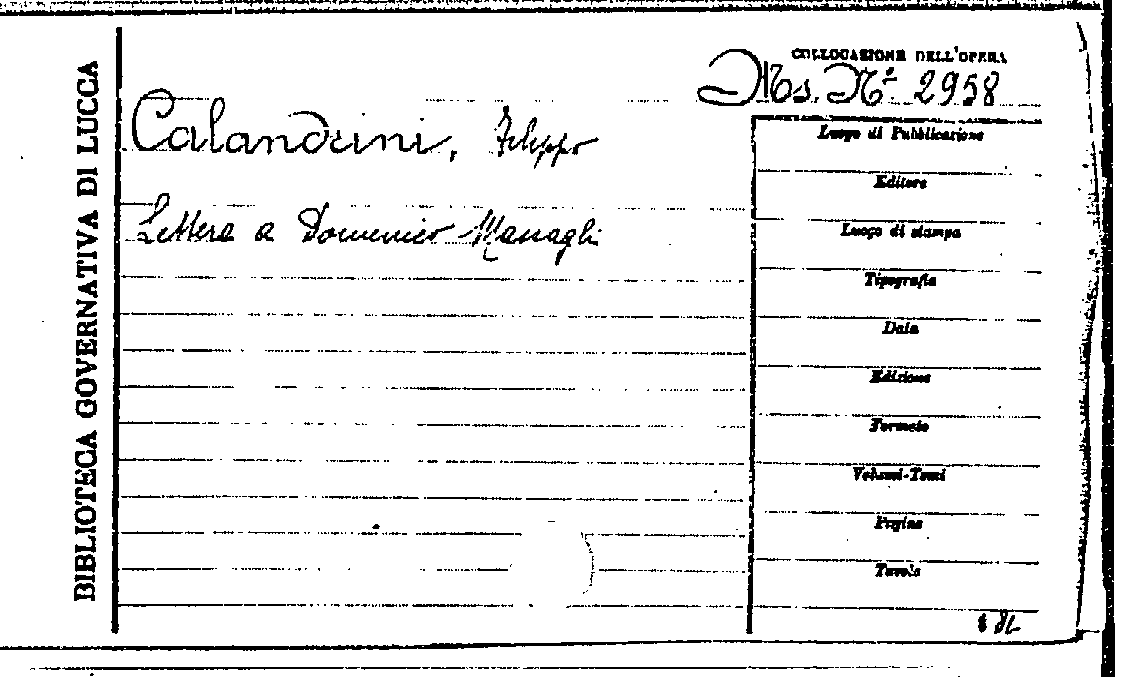 BIBLIOTECA GOVERNATIVA DI LUCCA
COLLOCAZIONE DELL'OPERA
Ms. N.º 2958
Calandrini, Filippo
Lettera a Domenico Massagli
Luogo di Pubblicazione
Editore
Luogo di stampa
Tipografia
Data
Edizione
Formato
Volumi-Tomi
Pagine
Tavole